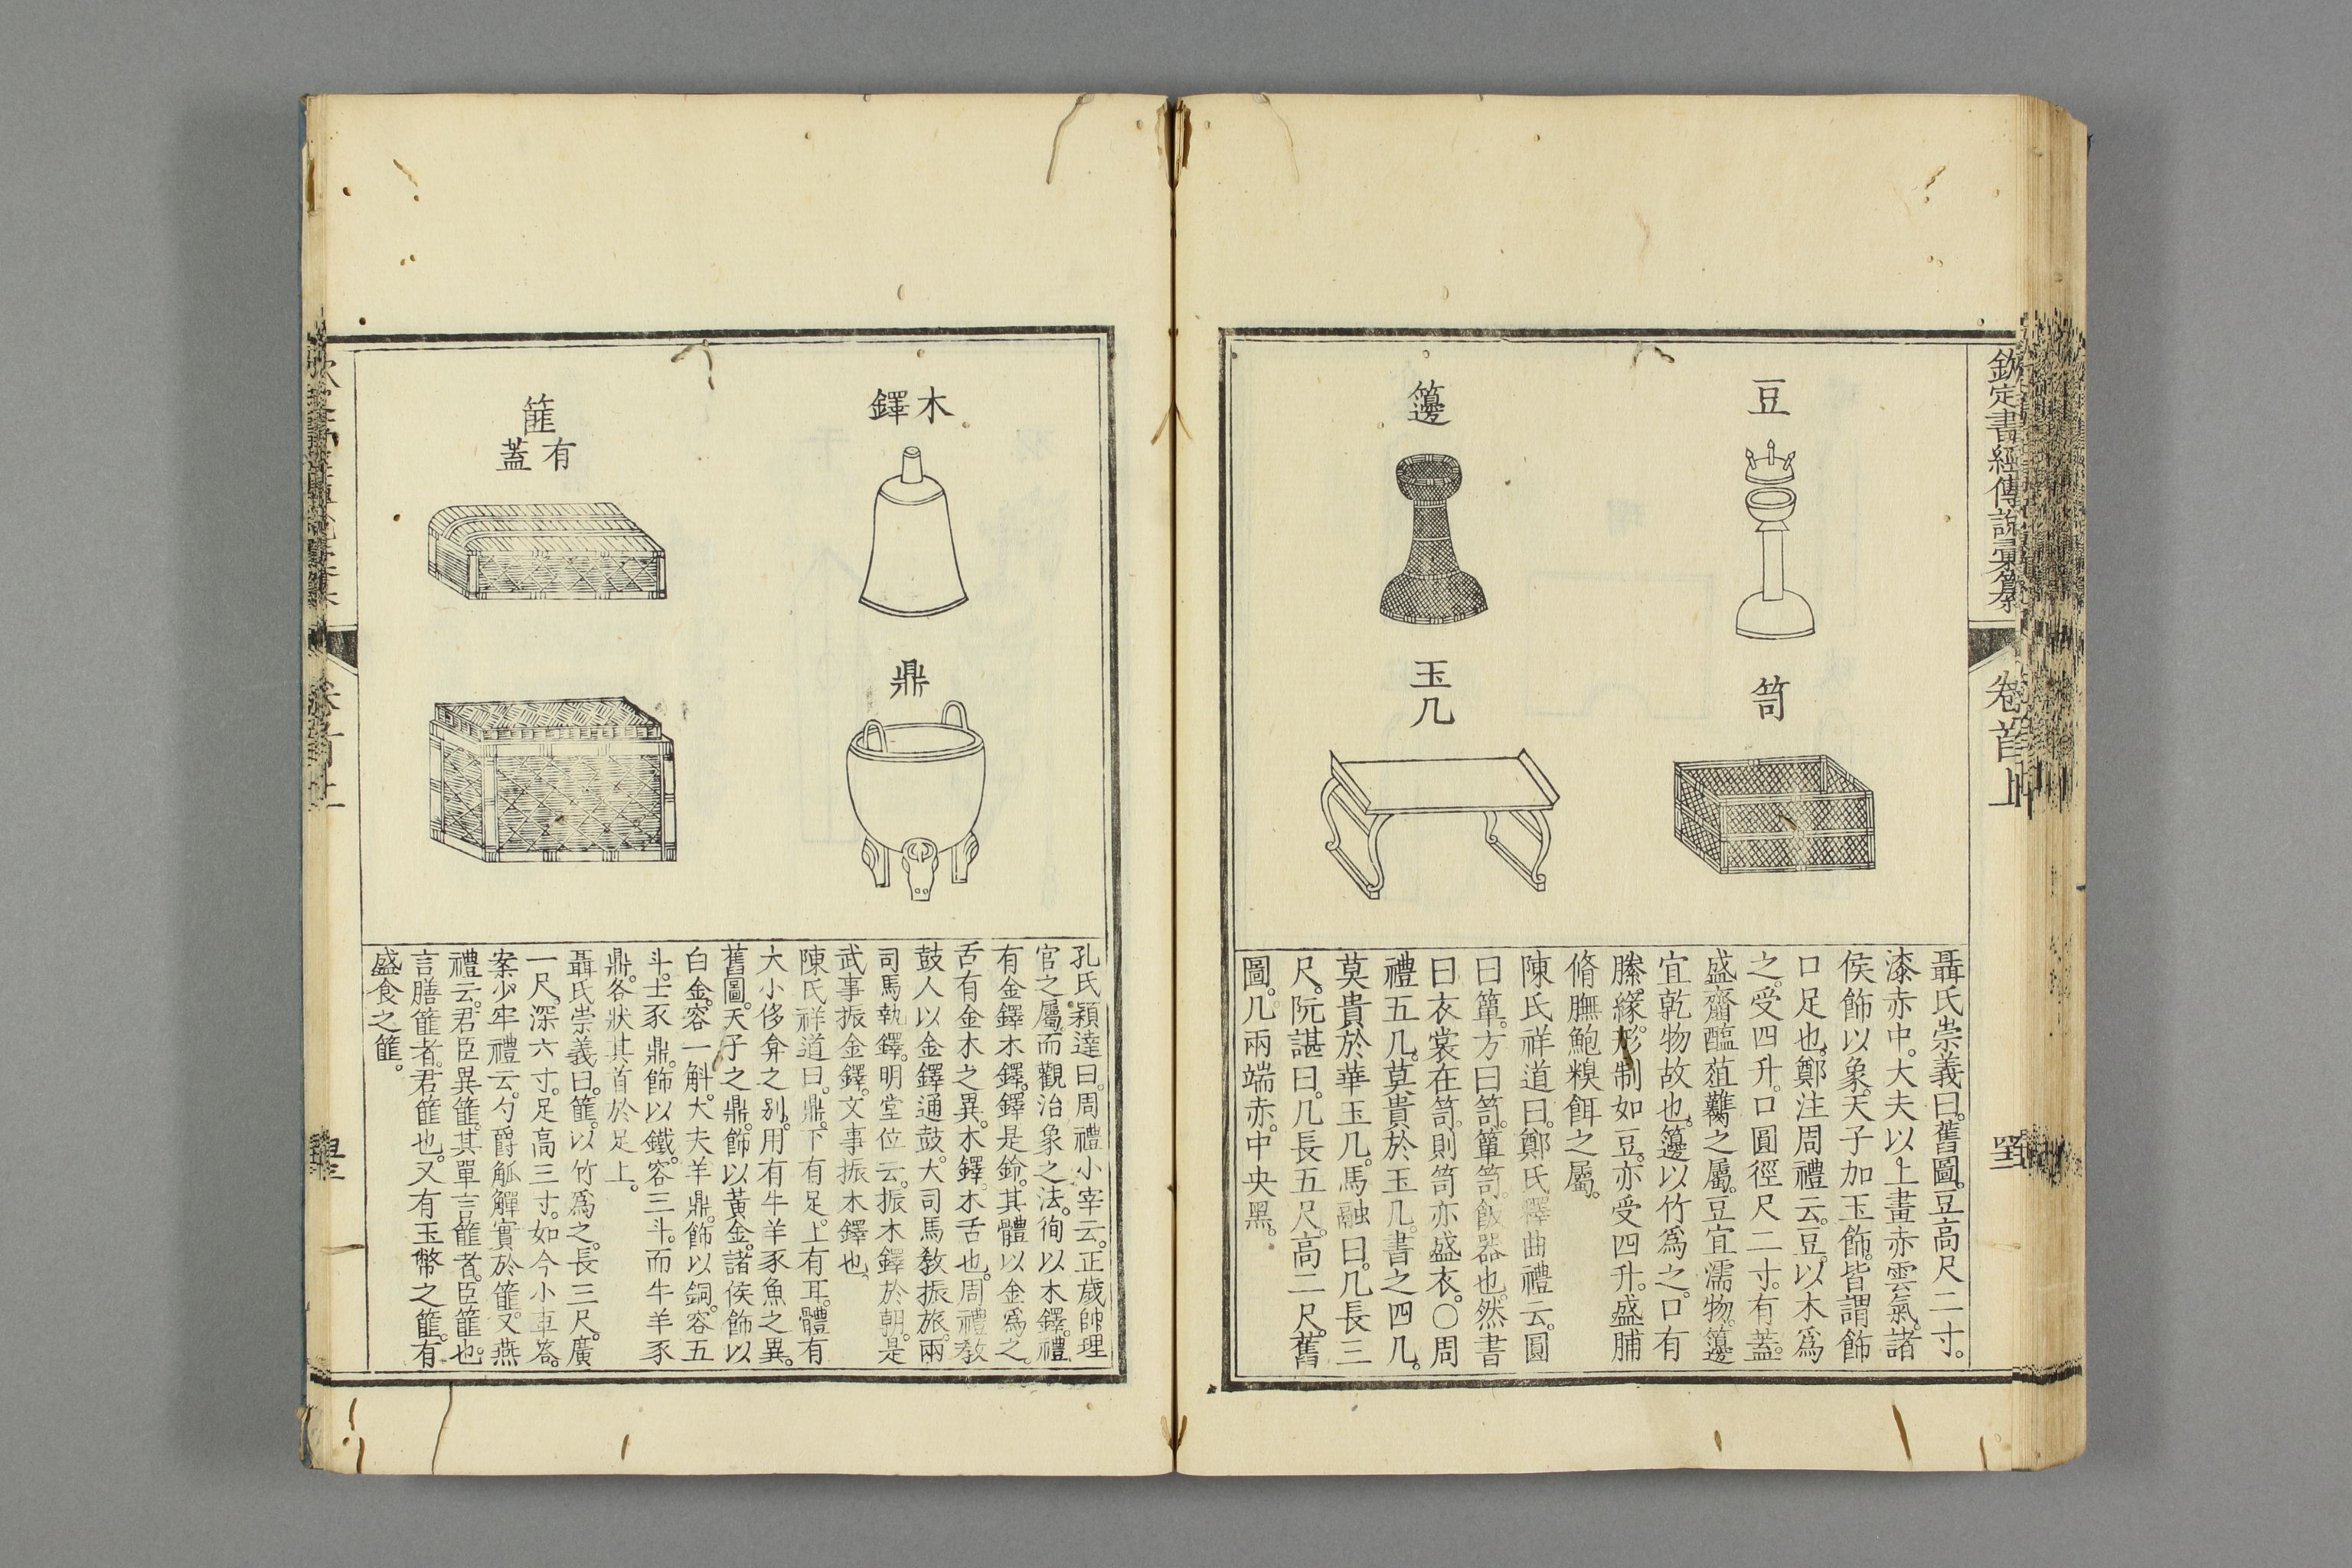 欽定書經傳說彙纂
卷首上
豆
笥
籩
玉几
聶氏崇義曰。舊圖。豆高尺二寸。
漆赤中。大夫以上畫赤雲氣。諸
侯飾以象。天子加玉飾。皆謂飾
口足也。鄭注周禮云。豆。以木爲
之。受四升。口圓徑尺二寸。有蓋。
盛齏醢葅臡之屬。豆宜濡物。籩
宜乾物故也。籩以竹爲之。口有
縢緣。形制如豆。亦受四升。盛脯
脩膴鮑糗餌之屬。
陳氏祥道曰。鄭氏釋曲禮云。圓
曰簞。方曰笥。簞笥。飯器也。然書
曰衣裳在笥。則笥亦盛衣。〇周
禮五几。莫貴於玉几。書之四几。
莫貴於華玉几。馬融曰。几長三
尺。阮諶曰。几長五尺。高二尺。舊
圖。几兩端赤。中央黑。
木鐸
鼎
篚
有蓋
孔氏穎達曰。周禮小宰云。正歲帥理
官之屬。而觀治象之法。徇以木鐸。禮
有金鐸木鐸。鐸是鈴。其體以金爲之。
舌有金木之異。木鐸。木舌也。周禮敎
鼓人以金鐸通鼓。大司馬敎振旅。兩
司馬執鐸。明堂位云。振木鐸於朝。是
武事振金鐸。文事振木鐸也。
陳氏祥道曰。鼎。下有足。上有耳。體有
大小侈弇之别。用有牛羊豕魚之異。
舊圖。天子之鼎。飾以黃金。諸侯飾以
白金。容一斛。大夫羊鼎。飾以銅。容五
斗。士豕鼎。飾以鐵。容三斗。而牛羊豕
鼎。各狀其首於足上。
聶氏崇義曰。篚。以竹爲之。長三尺。廣
一尺。深六寸。足高三寸。如今小車笭。
案少牢禮云。勺爵觚觶實於篚。又燕
禮云。君臣異篚。其單言篚者。臣篚也。
言膳篚者。君篚也。又有玉幣之篚。有
盛食之篚。